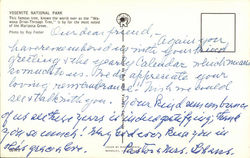 YOSEMITE NATIONAL PARK
This famous tree, known the world over as the "Wa-
wona Drive-Through Tree," is by far the most noted
of the Mariposa Grove.
Photo by Ray Foster
Our dear friend,
Again you
have remembered us with your kind
greeting & the yearly Calendar which means
so much to us. We do appreciate your
loving remembrance. Wish we could
see & talk with you.
Your kind remembrance
of us all these years is indeed gratifying. Thank
you so much. May God ever keep you in
His grace & love.
Pastor & Mrs.